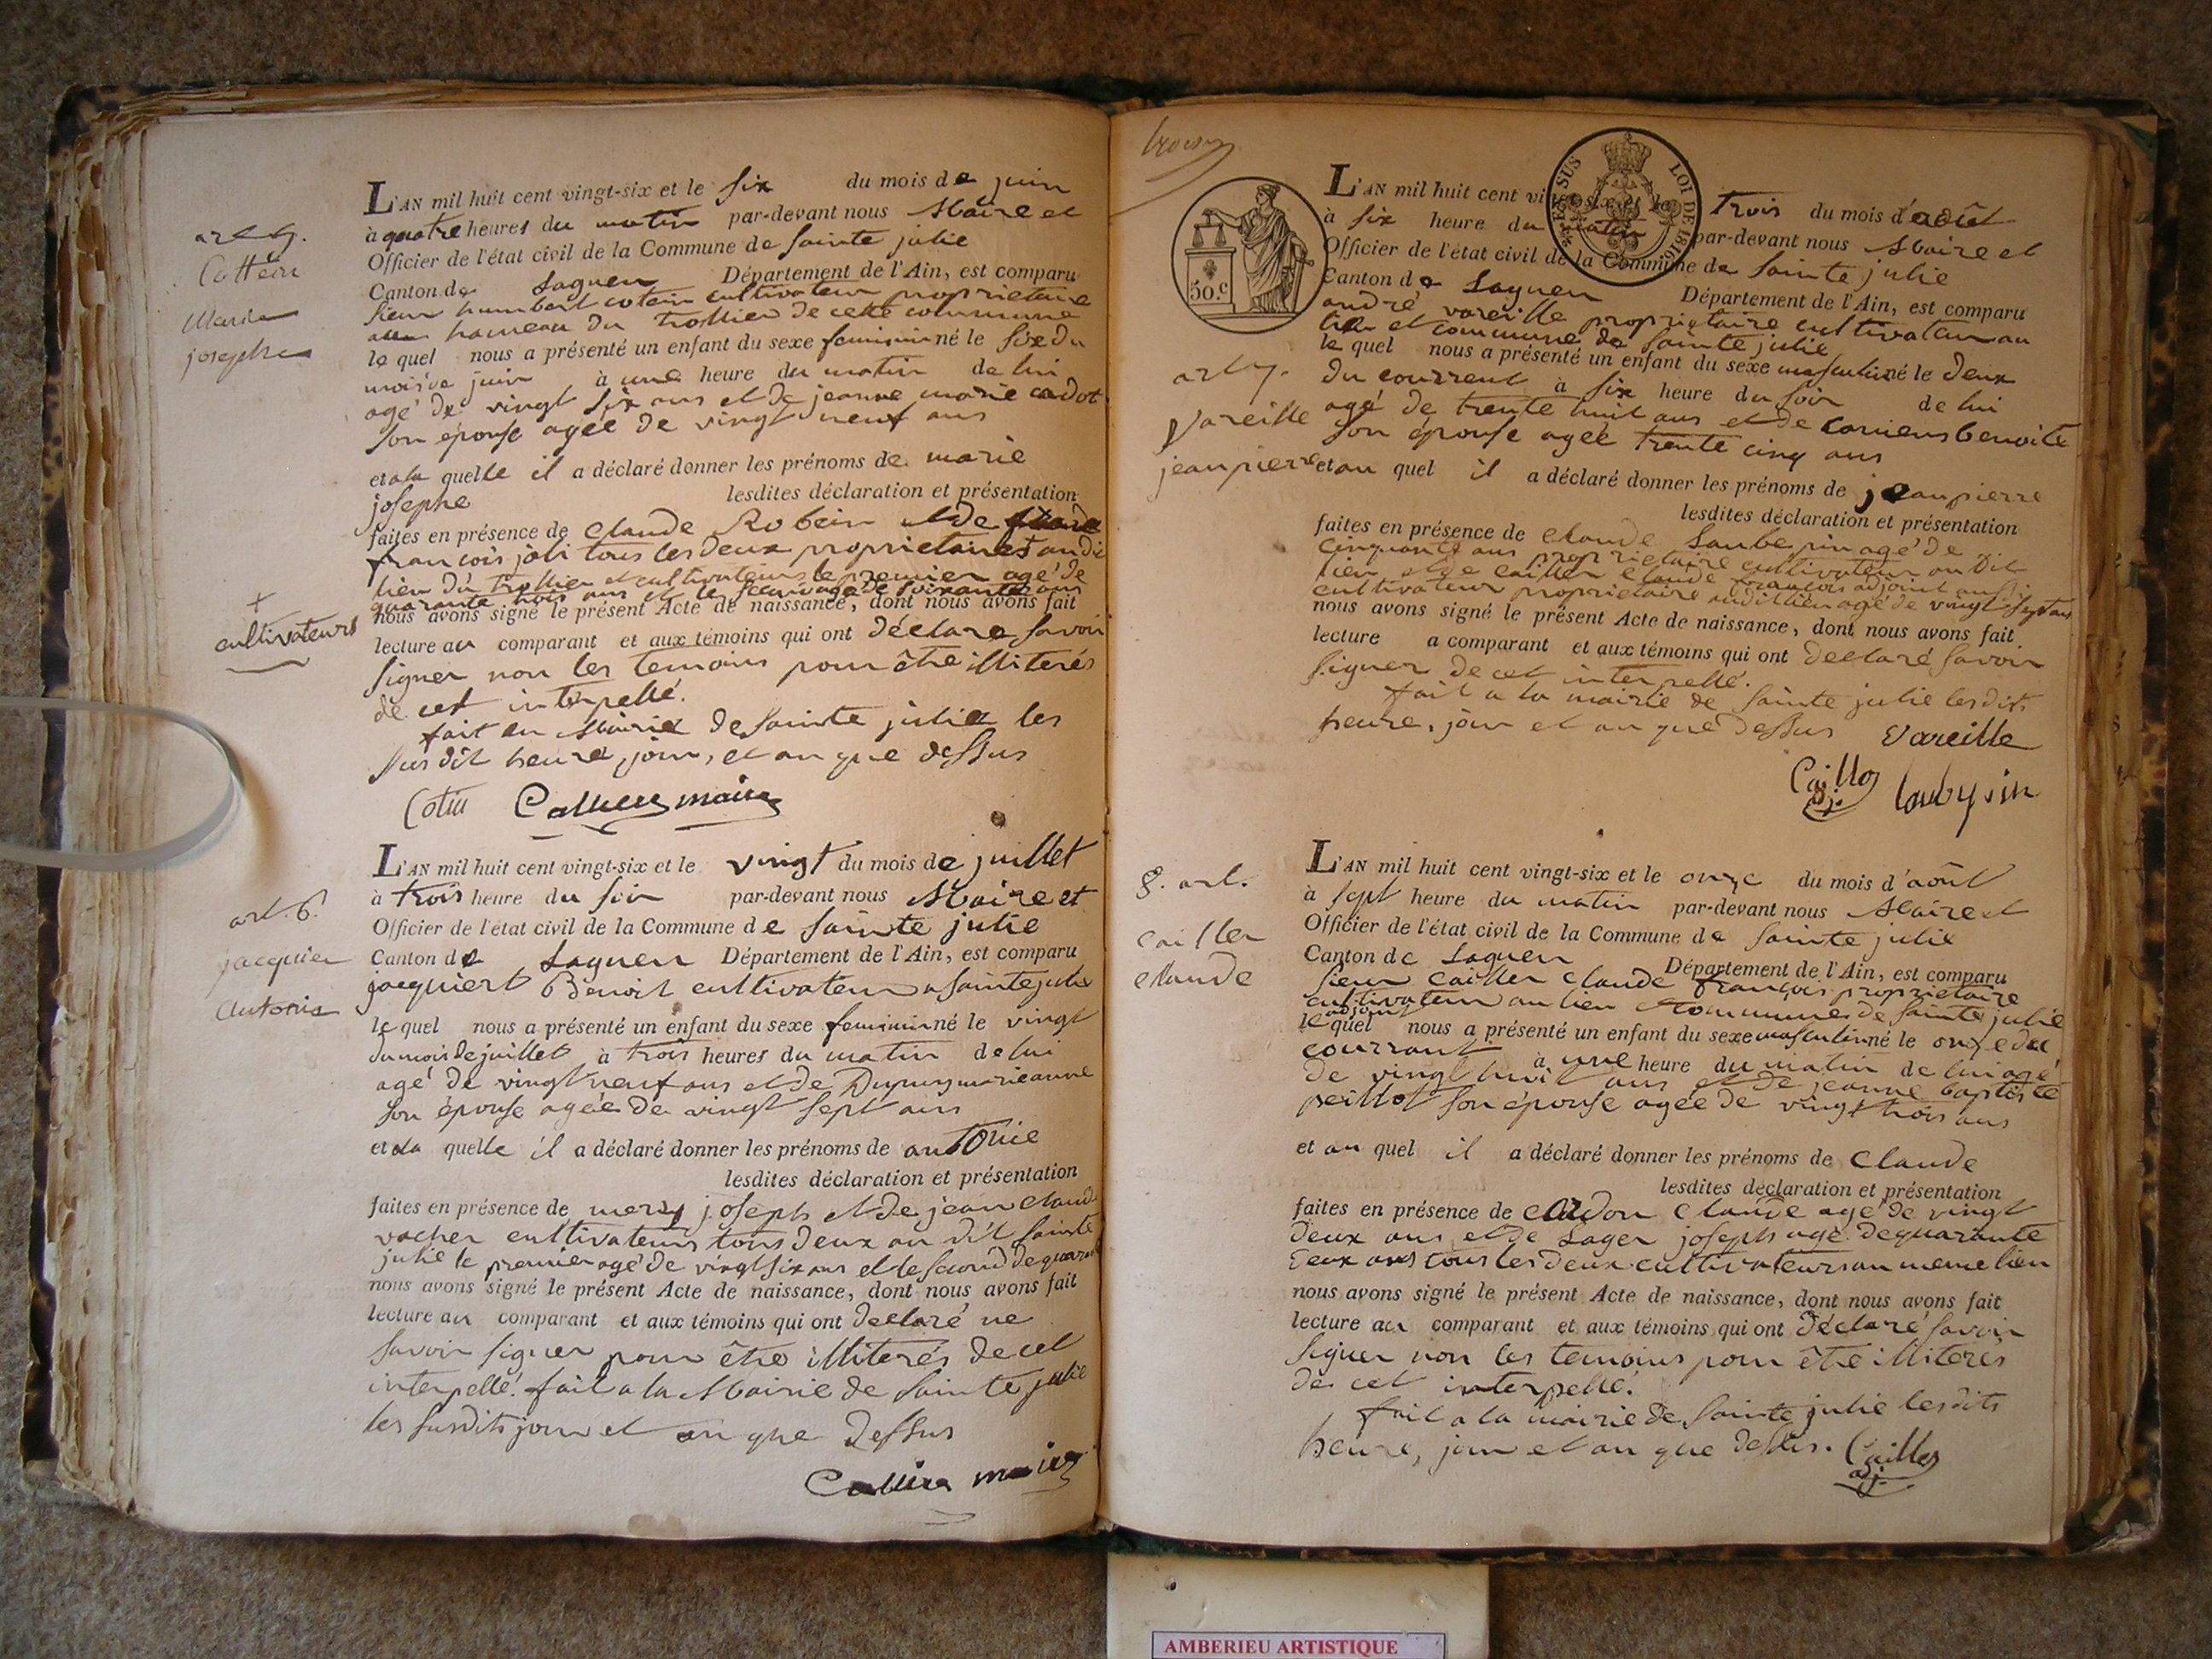 art 5.
Cottin
Marie
josephe
L'AN mil huit cent vingt-six et le six du mois de juin
à quatre heures du matin par-devant nous Maire et
Officier de l'état civil de la Commune de sainte julie
Canton de Lagneu Département de l'Ain, est comparu
sieur humbert cotin cultivateur proprietaire
au hameau du trollier de cette commune
le quel nous a présenté un enfant du sexe feminin né le six du
mois de juin à une heure du matin de lui
agé de vingt six ans et de jeanne marie cadot
son épouse agée de vingt neuf ans
et a la quelle il a déclaré donner les prénoms de marie
josephe lesdites déclaration et présentation
faites en présence de Claude Robein et de
francois joli tous les deux proprietaires au dit
lieu du trollier et cultivateurs le premier agé de
quarante trois ans et le second agé de soixante ans
+
cultivateurs
nous avons signé le présent Acte de naissance, dont nous avons fait
lecture au comparant et aux témoins qui ont déclaré savoir
signer non les temoins pour être illiterés
de cet interpellé.
fait en Mairie de sainte julie les
susdit heure, jour, et an que dessus
Cotin maire
L'AN mil huit cent vingt-six et le vingt du mois de juillet
à trois heure du soir par-devant nous Maire et
Officier de l'état civil de la Commune de sainte julie
art. 6.
jacquier
Antonie
Canton de Lagneu Département de l'Ain, est comparu
jacquiert Benoit cultivateur a sainte julie
le quel nous a présenté un enfant du sexe feminin né le vingt
du mois de juillet à trois heures du matin de lui
agé de vingt neuf ans et de Dupuy marieanne
son épouse agée de vingt sept ans
et a la quelle il a déclaré donner les prénoms de antonie
lesdites déclaration et présentation
faites en présence de mery joseph et de jean claude
vacher cultivateurs tous deux au dit sainte
julie le premier agé de vingt six ans et le second de quarante
nous avons signé le présent Acte de naissance, dont nous avons fait
lecture au comparant et aux témoins qui ont declaré ne
savoir signer pour être illiterés de cet
interpellé. fait a la Mairie de sainte julie
les susdits jour et an que dessus
maire
L'AN mil huit cent vingt-six et le trois du mois d'août
à six heure du matin par-devant nous Maire et
Officier de l'état civil de la Commune de sainte julie
Canton de Lagneu Département de l'Ain, est comparu
TIMBRE SUS LOI DE 1816
50.c
andré vareille proprietaire cultivateur au
lieu et commune de sainte julie
le quel nous a présenté un enfant du sexe masculin né le deux
du courrent à six heure du soir de lui
art 7.
Vareille
jeanpierre
agé de trente huit ans et de benoite
son épouse agée trente cinq ans
et au quel il a déclaré donner les prénoms de jeanpierre
lesdites déclaration et présentation
faites en présence de claude agé de
cinquante ans proprietaire cultivateur au dit
lieu et de cailler claude francois adjoint
cultivateur proprietaire audit lieu agé de vingt sept ans
nous avons signé le présent Acte de naissance, dont nous avons fait
lecture a comparant et aux témoins qui ont declaré savoir
signer de cet interpellé.
fait a la mairie de sainte julie lesdits
heure, jour et an que dessus Vareille
Cailler adj.
L'AN mil huit cent vingt-six et le onze du mois d'août
à sept heure du matin par-devant nous Maire et
Officier de l'état civil de la Commune de sainte julie
8. art.
cailler
claude
Canton de Lagneu Département de l'Ain, est comparu
sieur cailler claude francois proprietaire
cultivateur au lieu et commune de sainte julie
adjoint
le quel nous a présenté un enfant du sexe masculin né le onze du
courrant à une heure du matin de lui agé
de vingt huit ans et de jeanne baptiste
peillot son épouse agée de vingt trois ans
et au quel il a déclaré donner les prénoms de Claude
lesdites déclaration et présentation
faites en présence de cardon Claude agé de vingt
deux ans et de Lager joseph agé de quarante
deux ans tous les deux cultivateurs au meme lieu
nous avons signé le présent Acte de naissance, dont nous avons fait
lecture au comparant et aux témoins qui ont déclaré savoir
signer non les temoins pour être illiterés
de cet interpellé.
fait a la mairie de sainte julie lesdits
heure, jour et an que dessus. Cailler
adj.
AMBERIEU ARTISTIQUE